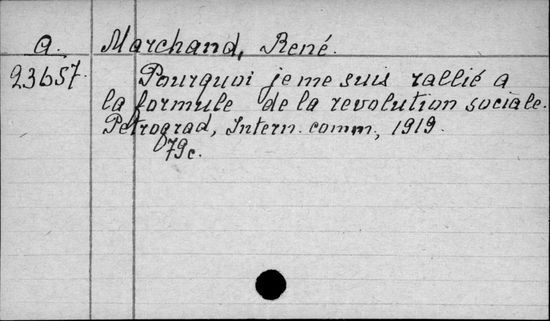 a. Marchand, René.
23657. Pourquoi je me suis rallié a
la formule de la revolution sociale.
Petrograd, Intern. comm., 1919.
79c.